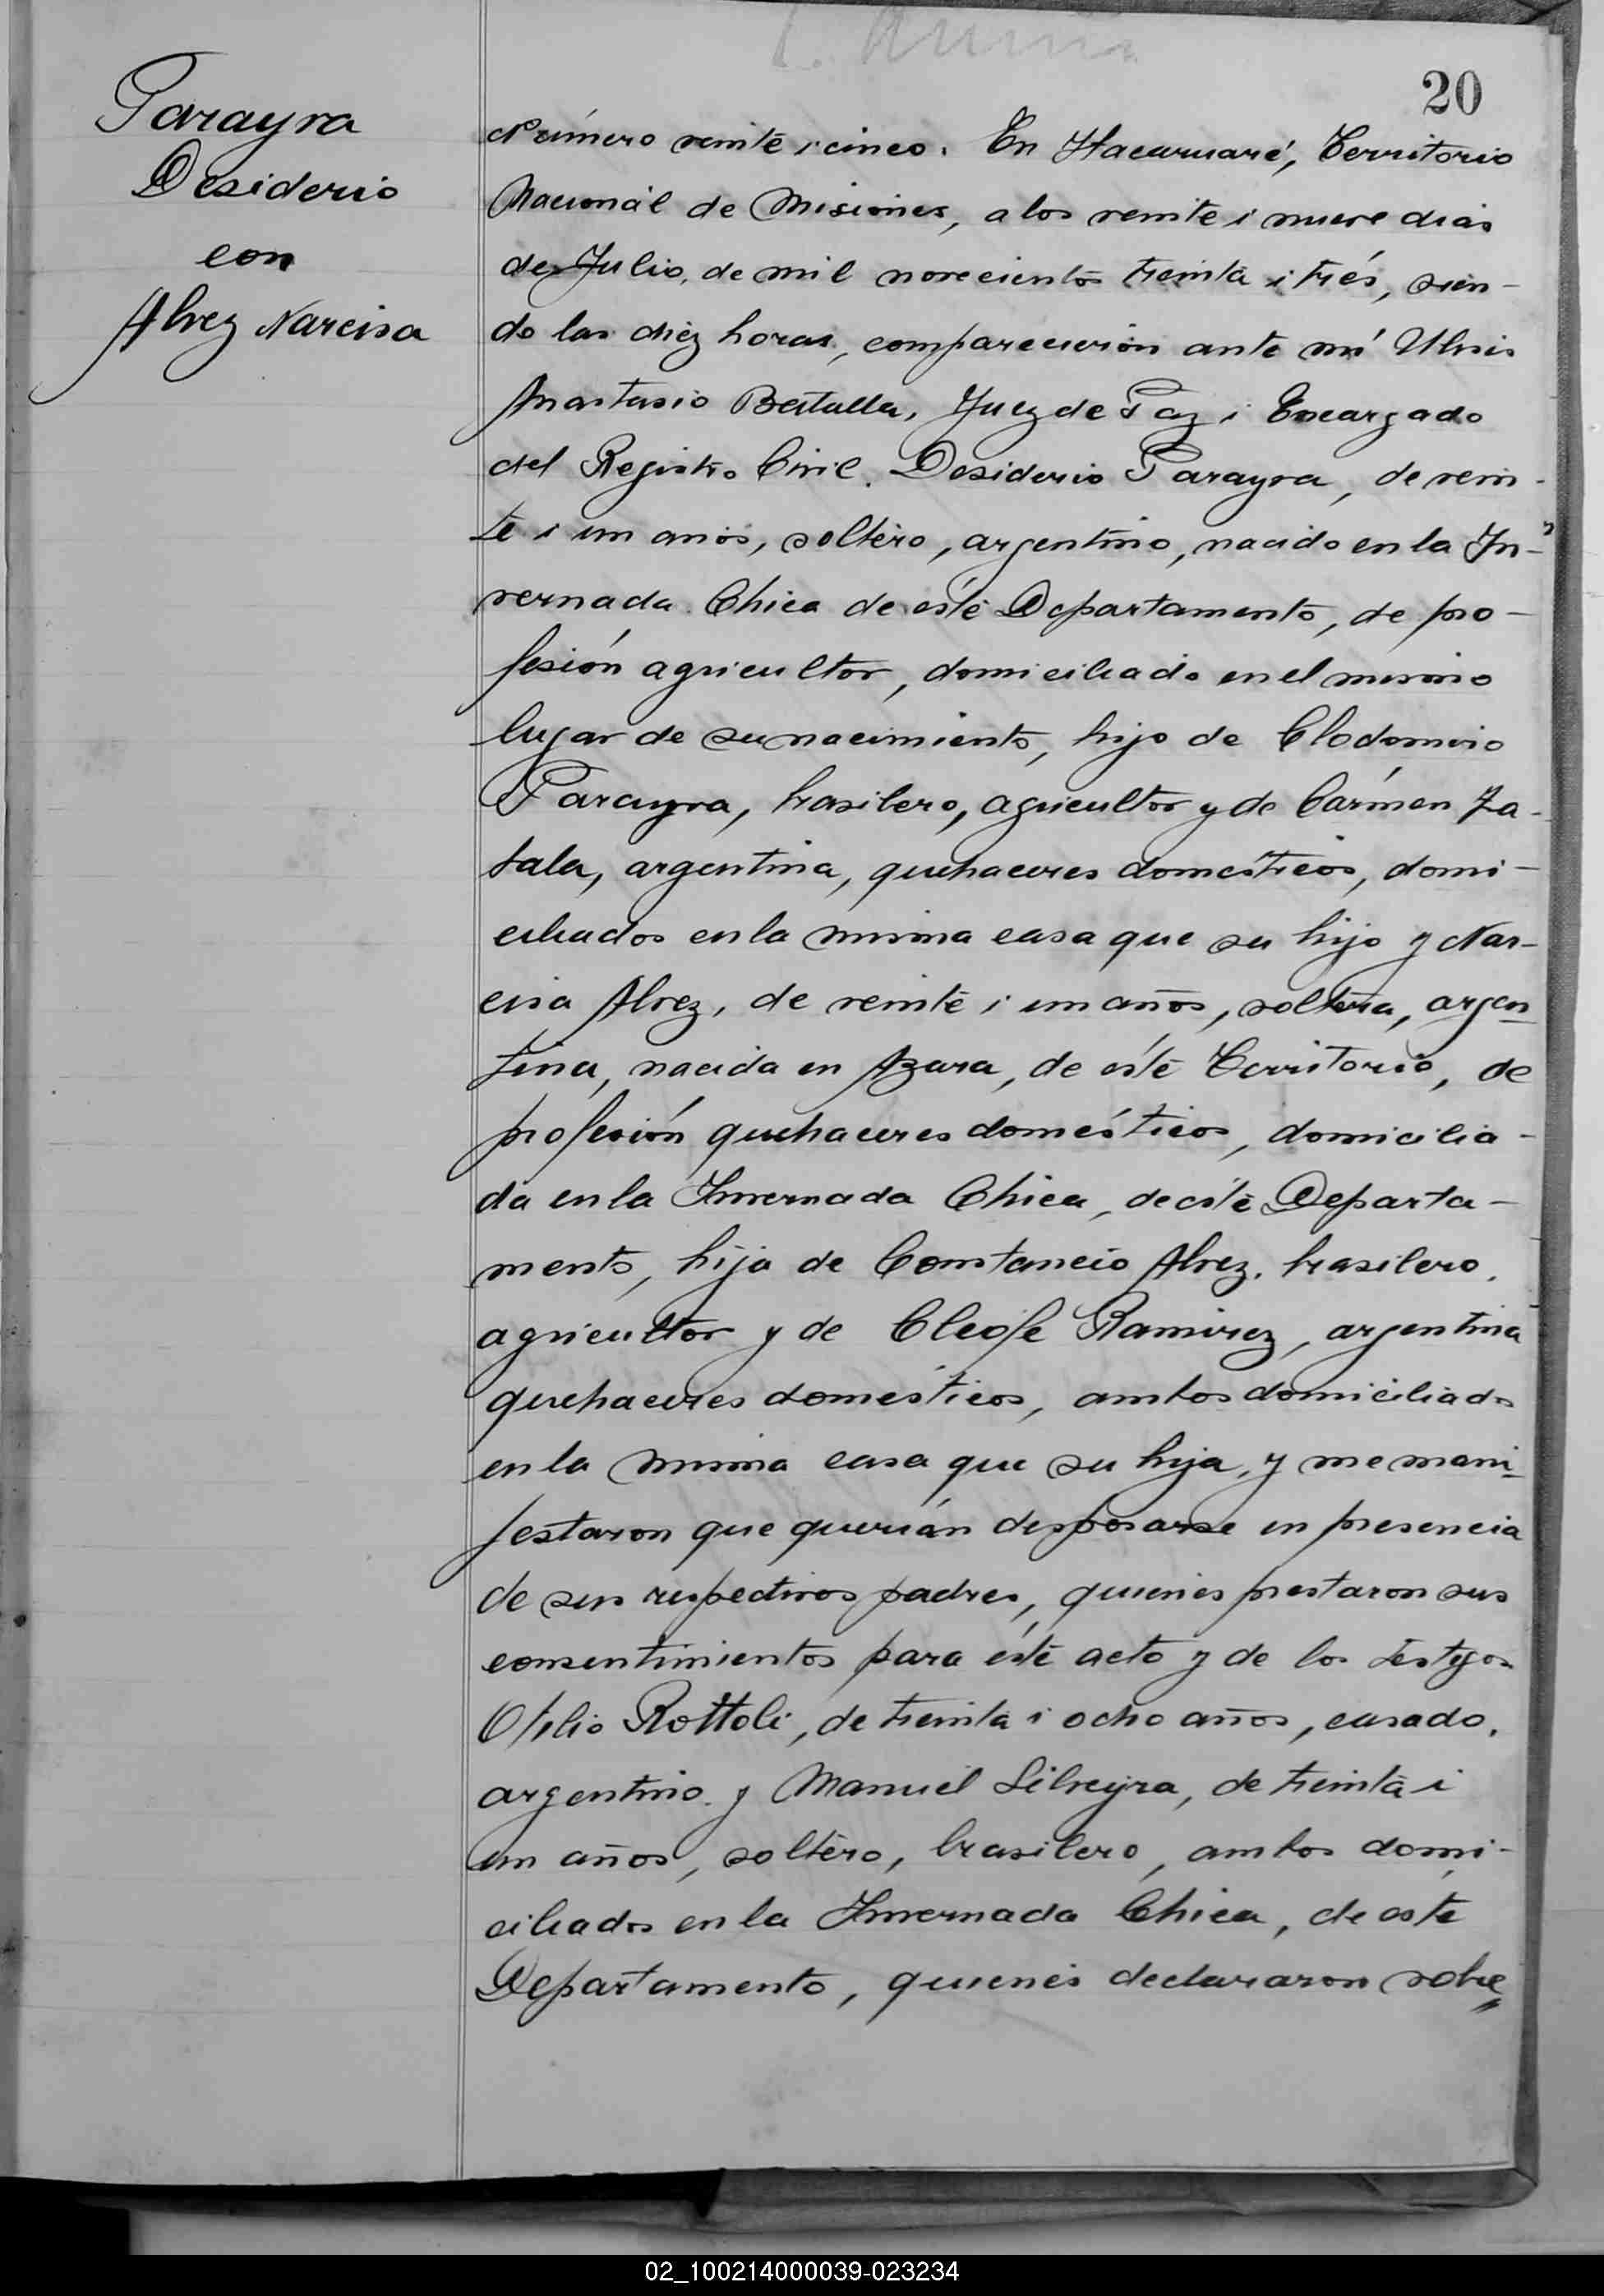 20
Parayra
Desiderio
con
Alvez Narcisa
Número veinte i cinco. En Itacaruaré, Territorio
Nacionál de Misiones, a los veinte i nueve dias
de Julio, de mil novecientos treinta i trés, sien-
do las diez horas, comparecieron ante mí
Anastasio Batalla, Juez de Paz i Encargado
del Registro Civil. Desiderio Parayra, de vein-
te i un años, soltero, argentino, nacido en la In-
vernada Chica de éste Departamento, de pro-
fesión agricultor, domiciliado en el mismo
lugar de su nacimiento, hijo de Clodomiro
Parayra, brasilero, agricultor y de Cármen Za-
tala, argentina, quehaceres domésticos, domi-
ciliados en la misma casa que su hijo y Nar-
cisa Alvez, de veinte i un años, soltera, argen-
tina, nacida en Azara, de éste Territorio, de
profesión quehaceres domésticos, domicilia-
da en la Invernada Chica, de éste Departa-
mento, hija de Constancio Alvez, brasilero,
agricultor y de Cleofe Ramirez, argentina
quehaceres domésticos, ambos domiciliados
en la misma casa que su hija, y me mani-
festaron que querián desposarse en presencia
de sus respectivos padres, quienes prestaron sus
consentimientos para éste acto y de los testigos
Ofilio Rottoli, de treinta i ocho años, casado,
argentino y Manuel Silveyra, de treinta i
un años, soltero, brasilero, ambos domi-
ciliados en la Invernada Chica, de este
Departamento, quienes declararon sobre
02_100214000039-023234